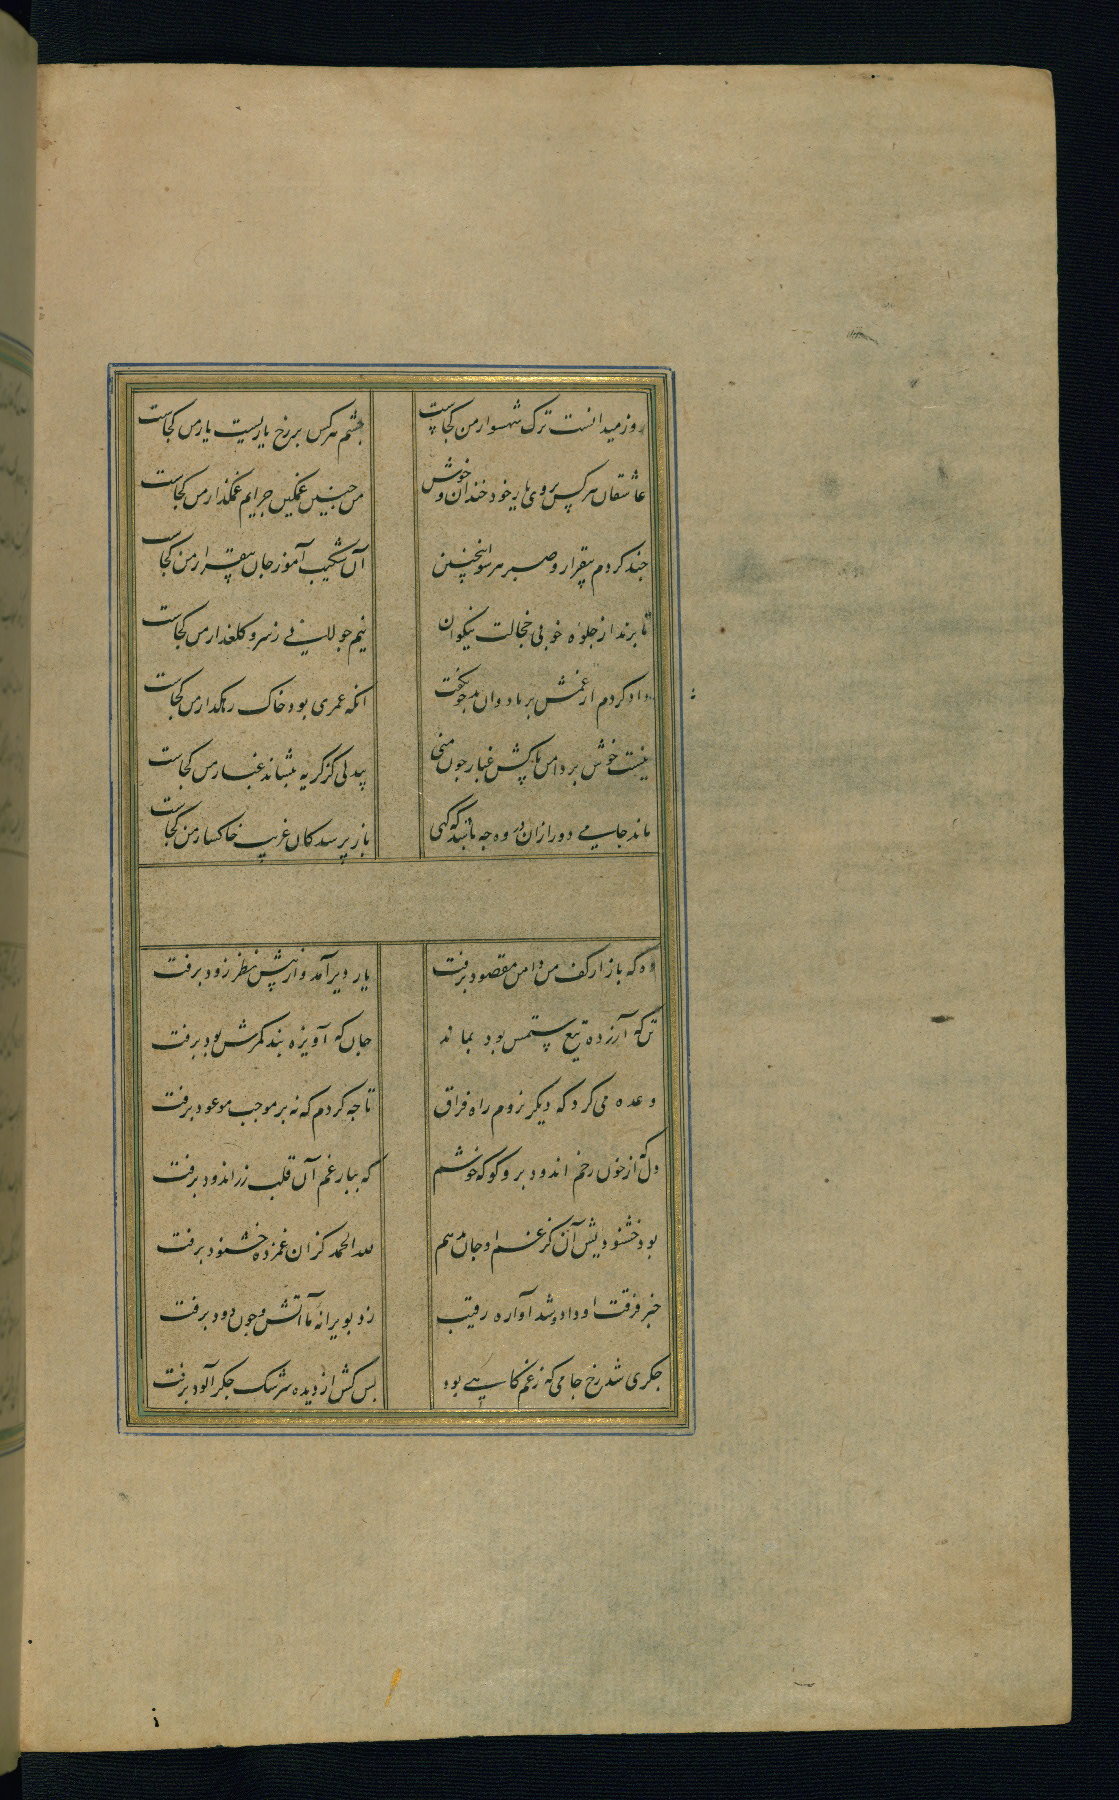 روز میدانست ترک شهسوار من کجاست
چشم هر کس بر رخ یاریست یار من کجاست
عاشقان هر کس بروی یار خود خندان و خوش
من چنین غمگین چرایم غمگذار من کجاست
چند کردم بیقرار و صبر هر سو اینچنین
آن شکیب آموز جان بیقرار من کجاست
تا برند از جلوه خوبی خجالت نیکوان
نیم جولانی ز سرو گلعذار من کجاست
داد کردم از غمش بر باد و آن مه جو نگفت
انکه عمری بود خاک رهگذار من کجاست
نیست خوش بر دامن پاکش غبار چون منی
بیدلی کز گریه بنشاند غبار من کجاست
ماند جامی دور ازان در وه چه باشد که گهی
باز پرسد کان غریب خاکسار من کجاست
وه که باز از کف من دامن مقصود برفت
یار دیر آمد و از پیش نظر زود برفت
تن که آزرده تیغ ستمش بود بماند
جان که آویزه بند کمرش بود برفت
وعده می کرد که دیگر نروم راه فراق
تا چه کردم که نه بر موجب موعود برفت
دل که از خون رخم اندود برو گو که خوشم
که ببازار غم آن قلب زر اندود برفت
بود خشنودیش آن کز غم او جان دهم
لله الحمد کزان غمزده خشنود برفت
خبر فرقت او داد و شد آواره رقیب
زد بویرانه ما آتش و چون دود برفت
جگری شد رخ جامی که ز غم کاهی بود
بس کش از دیده سرشک جگر آلود برفت